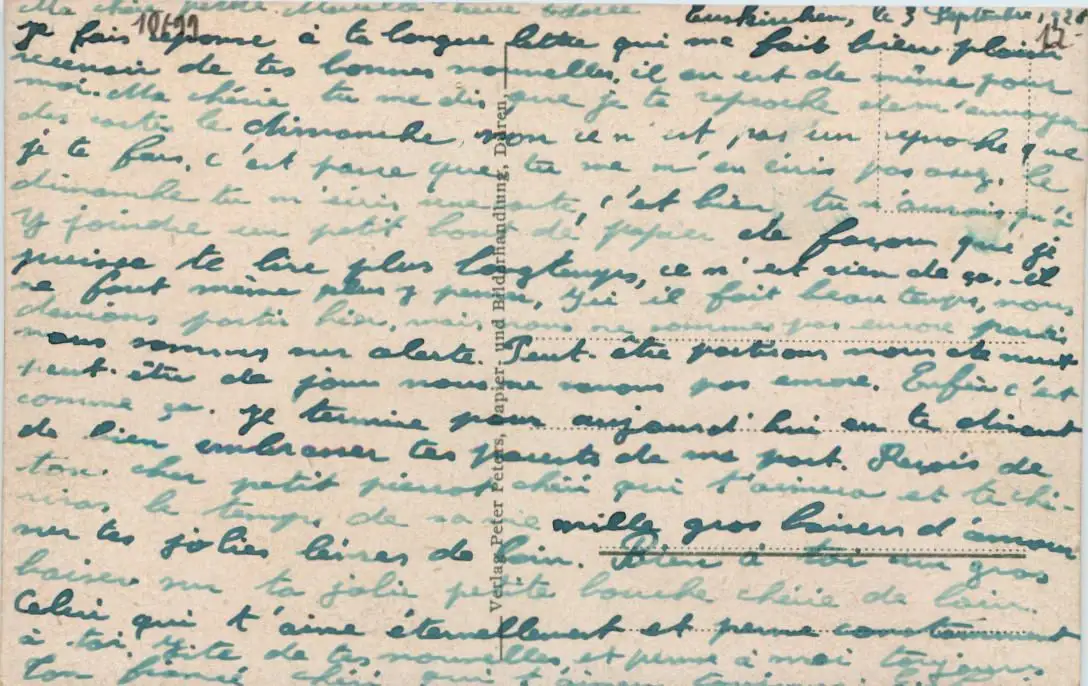 Ma chère petite Marcelle adorée Euskirchen, le 3 Septembre, 1920
10t99 12-
Je fais réponse à ta longue lettre qui me fait bien plaisir
recevoir de tes bonnes nouvelles, il en est de même pour
moi. Ma chérie tu me dis que je te reproche de m'envoyer
des cartes le dimanche, non ce n'est pas un reproche que
je te fais, c'est parce que tu ne m'en écris pas assez. Le
dimanche tu m'écris une carte, c'est bien, tu n'aurais qu'à
y joindre un petit bout de papier de façon que je
puisse te lire plus longtemps, ce n'est rien de ça. il
ne faut même plus y penser, Ici il fait beau temps, nous
devions partir hier, mais nous ne sommes pas encore partis
nous sommes sur alerte. Peut-être partirons nous de nuit
peut-être de jour nous ne savons pas encore. Enfin c'est
comme ça. Je termine pour aujourd'hui en te disant
de bien embrasser tes parents de ma part. Reçois de
ton cher petit pierrot chéri qui t'aimera et te ché-
riras le temps de sa vie mille gros baisers d'amour
sur tes jolies lèvres de loin. Bien à toi un gros
baiser sur ta jolie petite bouche chérie de loin.
Celui qui t'aime éternellement et pense constamment
à toi. Vite de tes nouvelles, et pense à moi toujours
ton fiancé chéri qui t'aimera toujours
Verlag Peter Peters, Papier- und Bilderhandlung, Düren.